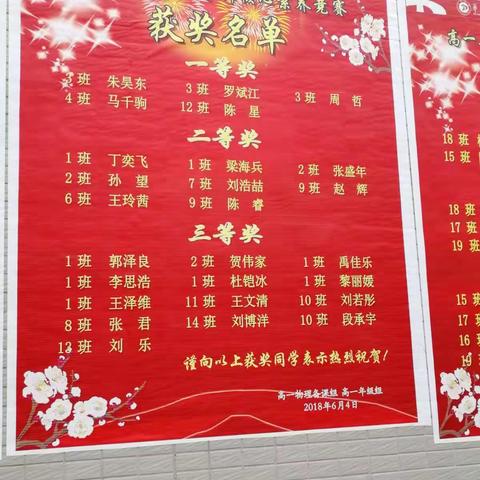 养竞赛
获奖名单
一等奖
3班 朱昊东 3班 罗斌江 3班 周 哲
4班 马千驹 12班 陈 星
二等奖
1班 丁奕飞 1班 梁海兵 2班 张盛年
2班 孙 望 7班 刘浩喆 9班 赵 辉
6班 王玲茜 9班 陈 睿
三等奖
1班 郭泽良 2班 贺伟家 1班 禹佳乐
1班 李思浩 1班 杜铠冰 1班 黎丽媛
1班 王泽维 11班 王文清 10班 刘若彤
8班 张 君 14班 刘博洋 10班 段承宇
13班 刘 乐
谨向以上获奖同学表示热烈祝贺!
高一物理备课组 高一年级组
2018年6月4日
高一
18班
15班
18班
17班
19班
15班
17班
16班
19班